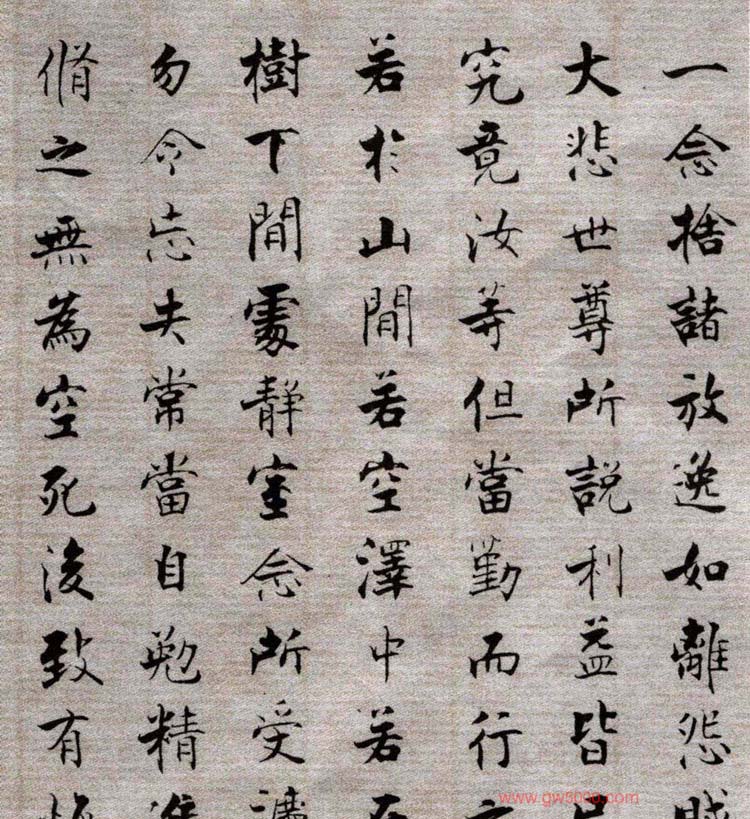 一念捨諸放逸如離怨
大悲世尊所說利益皆
究竟汝等但當勤而行
若於山間若空澤中若
樹下間處靜室念所受
勿令忘失常當自勉精
脩之無為空死後致有
www.gw5000.com